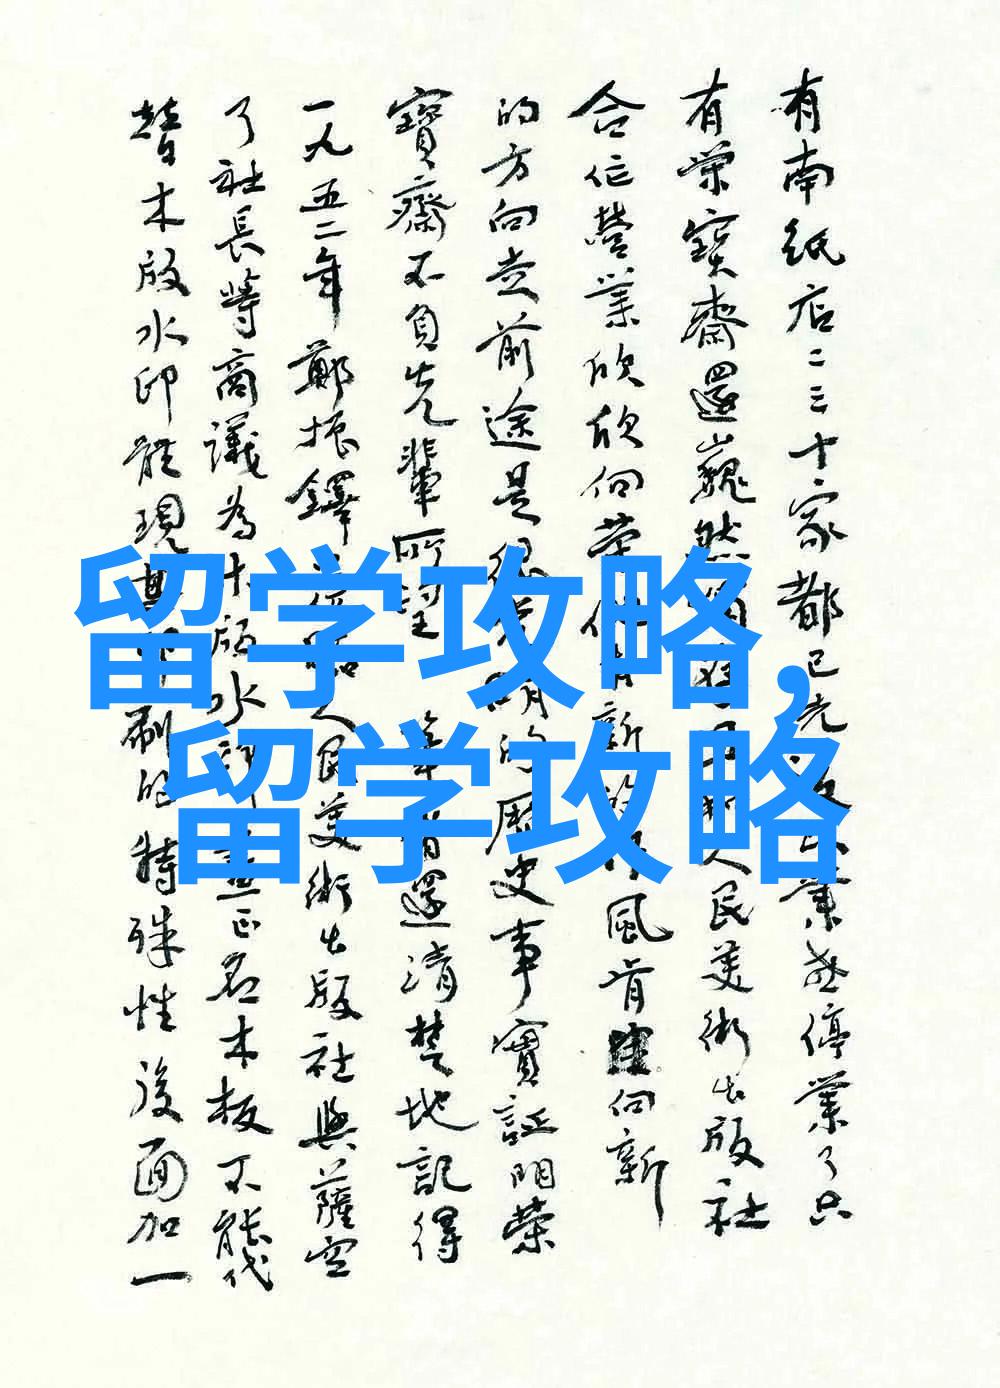 有南紙店二三十家都已先後歇業或停業了只
有榮寶齋還巍然獨存且和人民美術出版社
合作營業欣欣向榮作
新
作風肯定向新
的方向走前途是很光明的歷史事實証明榮
寶齋不負先輩所望
還清楚地記得
一九五二年鄭振鐸
人民美術出版社與薩空
了社長等商議為木版水印畫正名木板不能代
替木版水印能現其印刷的特殊性後面加一
留学攻略,
留学攻略